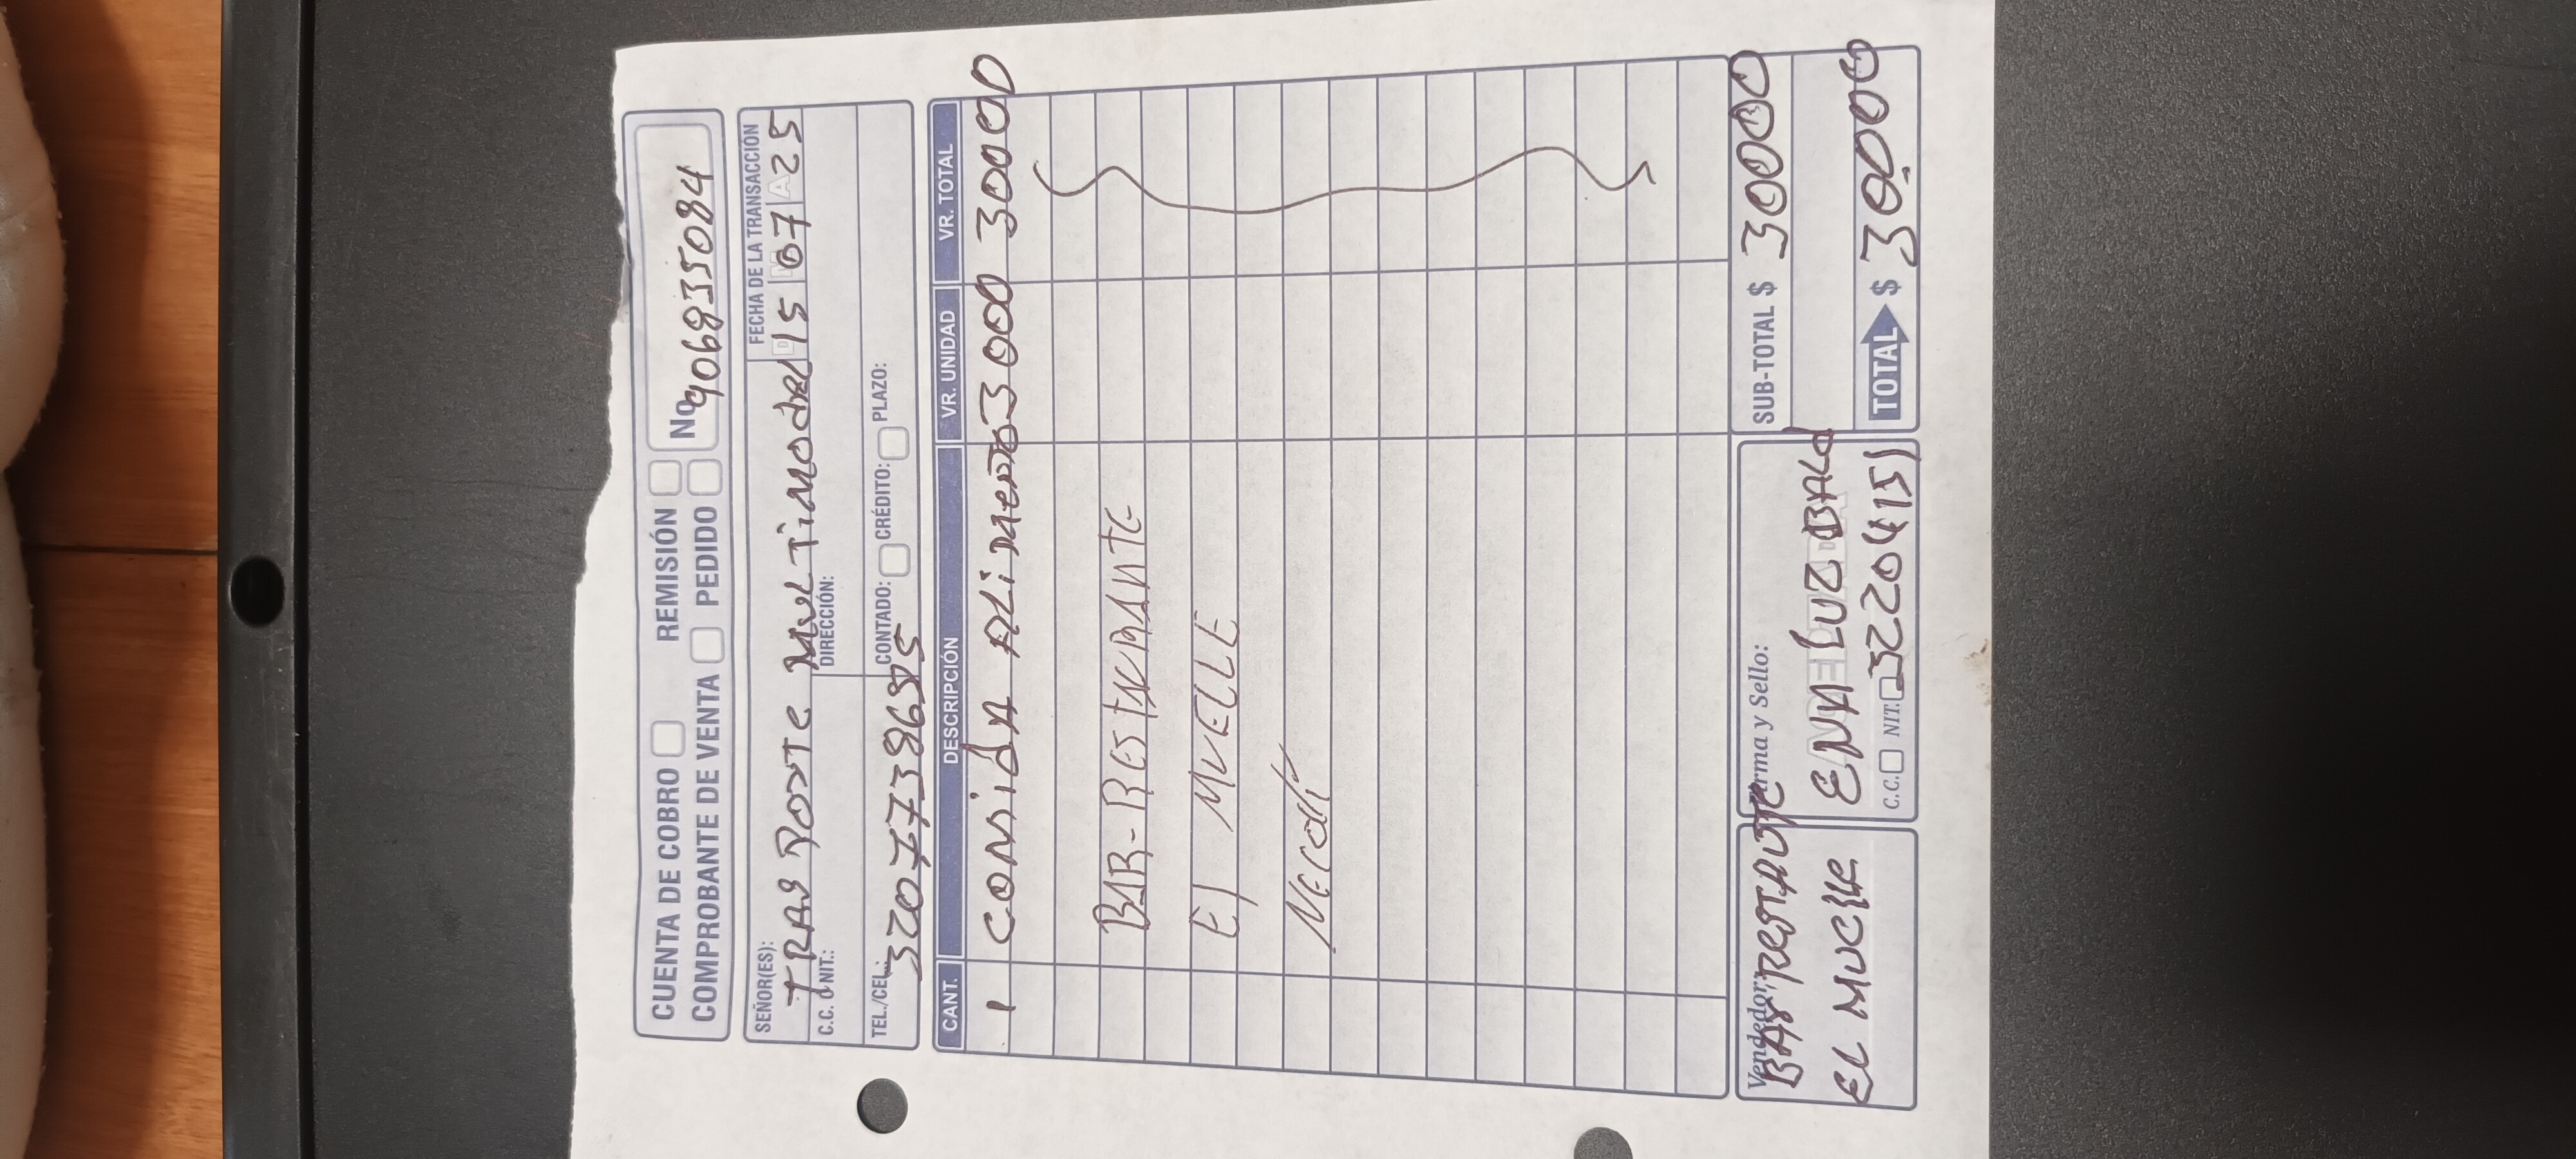 CUENTA DE COBRO REMISIÓN
COMPROBANTE DE VENTA PEDIDO
No 906835084
SEÑOR(ES): FECHA DE LA TRANSACCIÓN
TRAS PORTE MULTiMODAL 15 07 25
C.C. O NIT.: DIRECCIÓN:
TEL./CEL.: CONTADO: CRÉDITO: PLAZO:
3207738635
CANT. DESCRIPCIÓN VR. UNIDAD VR. TOTAL
1 CONSidA 3000 30000
BAR-RESTAURANTE
El MUELLE
Necoclí
Vendedor: Firma y Sello: SUB-TOTAL $ 30000
BAR RESTAUTE
EL MUELLE
ENA LUZ
C.C. NIT. 32204151
TOTAL $ 30000